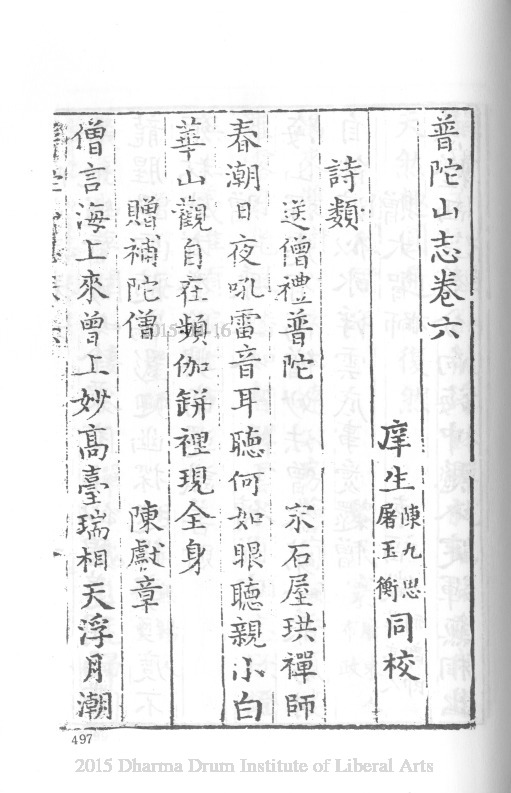 普陀山志卷六
庠生陳九思屠玉衡同校
詩類
送僧禮普陀 宗石屋珙禪師
春潮日夜吼雷音耳聽何如眼聽親小白
華山觀自在頻伽缾裡現全身
贈補陀僧 陳獻章
僧言海上來曾上妙高臺瑞相天浮月潮
497
2015 Dharma Drum Institute of Liberal Arts